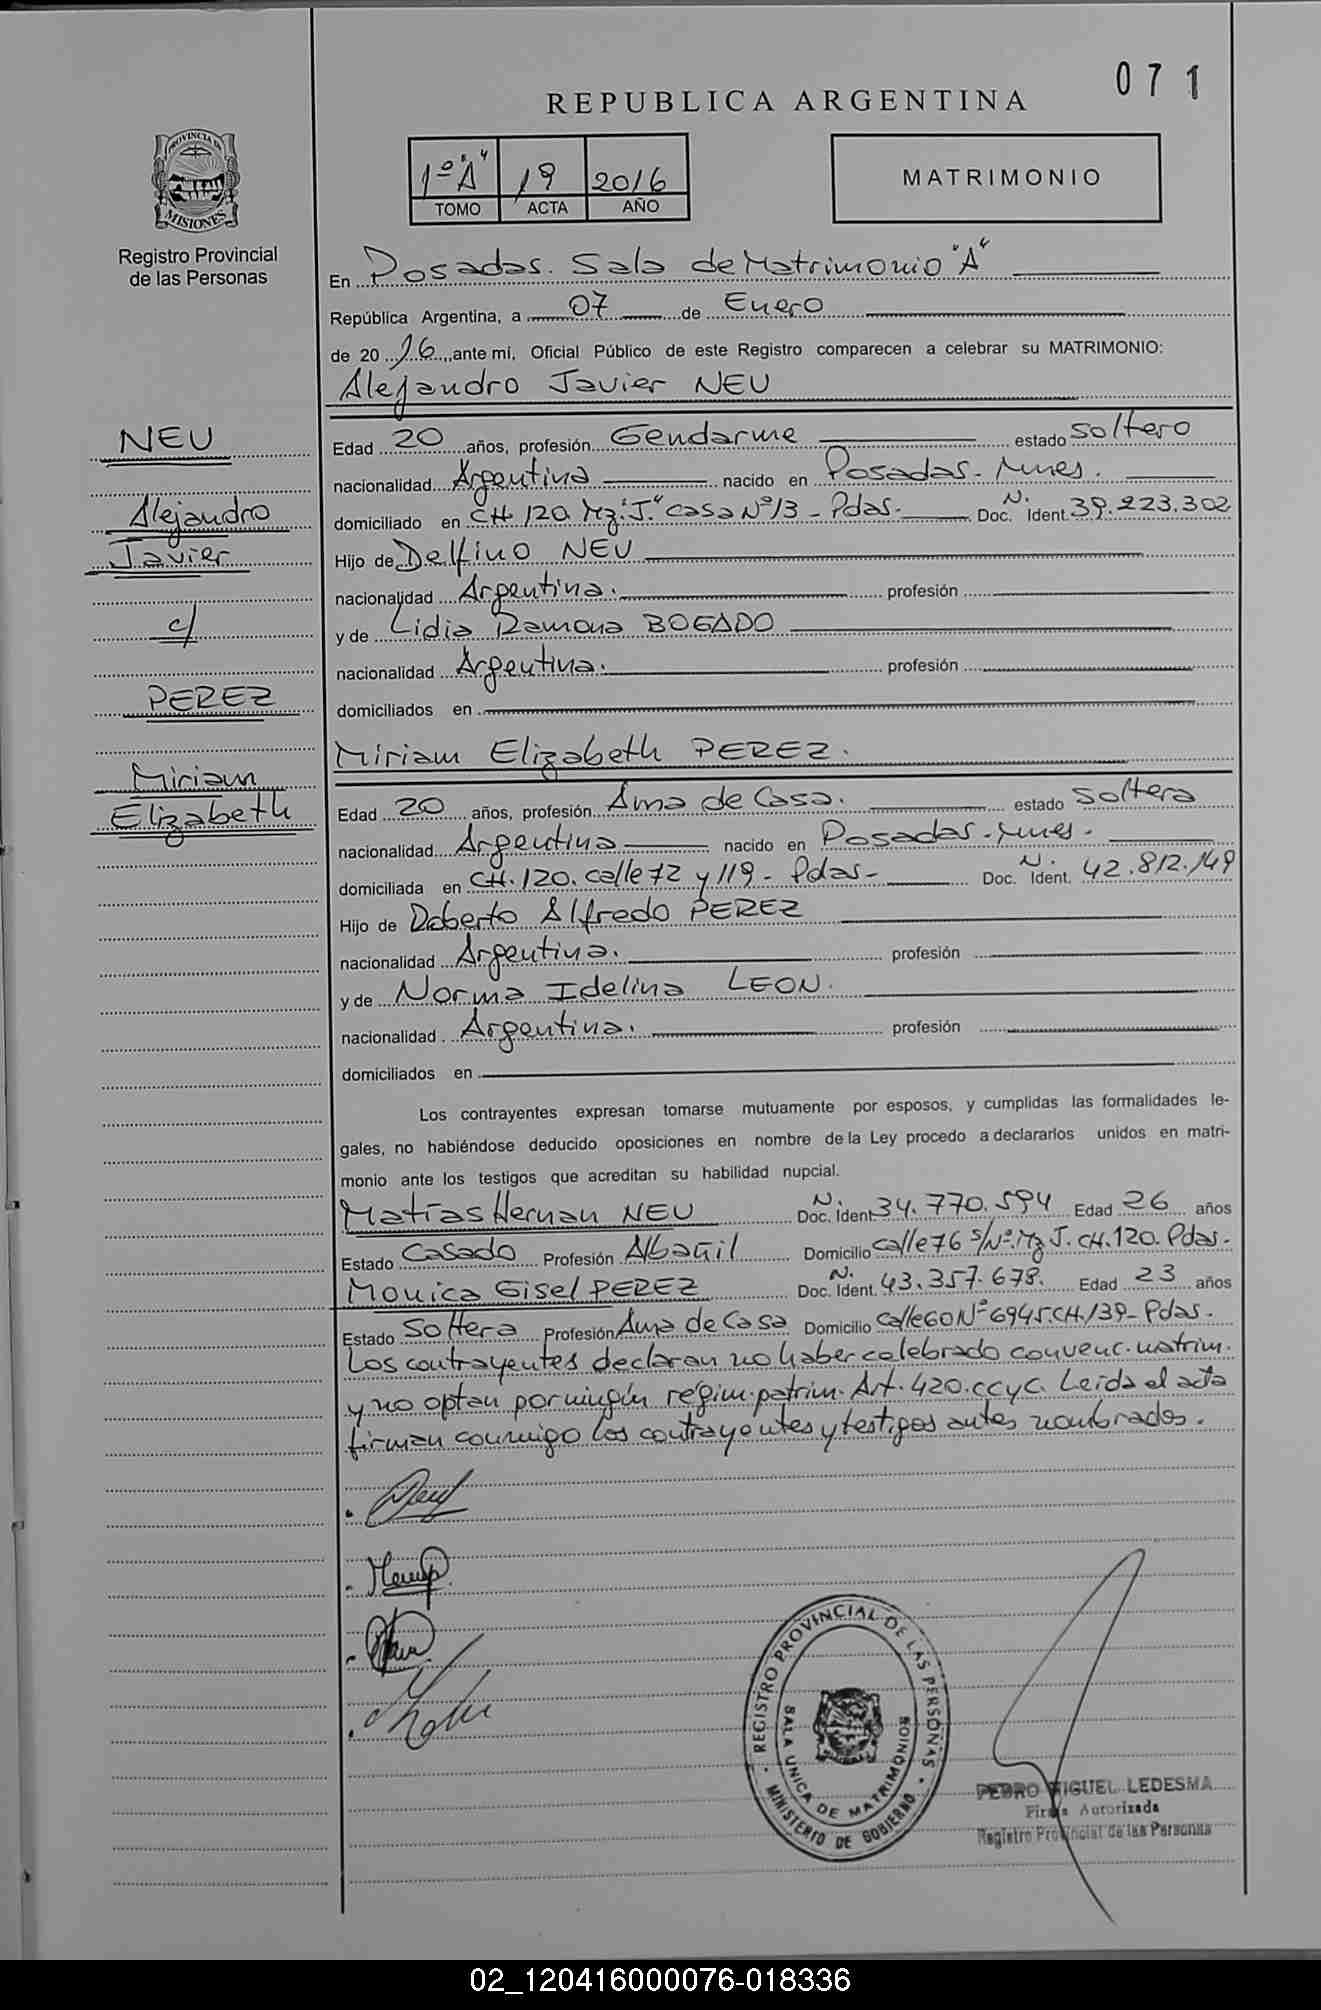 071
REPUBLICA ARGENTINA
PROVINCIA DE
MISIONES
Registro Provincial
de las Personas
1º "A" 19 2016
TOMO ACTA AÑO
MATRIMONIO
En Posadas. Sala de Matrimonio "A"
República Argentina, a 07 de Enero
de 2016, ante mi, Oficial Público de este Registro comparecen a celebrar su MATRIMONIO:
Alejandro Javier NEU
NEU
Alejandro
Javier
c/
PEREZ
Miriam
Elizabeth
Edad 20 años, profesión Gendarme estado soltero
nacionalidad Argentina nacido en Posadas - Mnes.
domiciliado en CH. 120. Mz. "J." casa Nº 13 - Pdas. Doc. N. Ident. 39.223.302
Hijo de Delfino NEU
nacionalidad Argentina. profesión
y de Lidia Ramona BOGADO
nacionalidad Argentina. profesión
domiciliados en
Miriam Elizabeth PEREZ.
Edad 20 años, profesión Ama de Casa. estado soltera
nacionalidad Argentina nacido en Posadas - Mnes.
domiciliada en CH. 120. calle 72 y 119 - Pdas - Doc. N. Ident. 42.812.149
Hijo de Roberto Alfredo PEREZ
nacionalidad Argentina. profesión
y de Norma Idelina LEON.
nacionalidad Argentina. profesión
domiciliados en
Los contrayentes expresan tomarse mutuamente por esposos, y cumplidas las formalidades le-
gales, no habiéndose deducido oposiciones en nombre de la Ley procedo a declararlos unidos en matri-
monio ante los testigos que acreditan su habilidad nupcial.
Matías Hernan NEU Doc. N. Ident. 34.770.594 Edad 26 años
Estado Casado Profesión Albañil Domicilio calle 76 s/Nº. Mz J. CH. 120. Pdas.
Monica Gisel PEREZ Doc. N. Ident. 43.357.678. Edad 23 años
Estado Soltera Profesión Ama de Casa Domicilio calle 60 Nº 6945. CH. 139 - Pdas.
Los contrayentes declaran no haber celebrado convenc. matrim.
y no optan por ningún régim. patrim. Art. 420. CCyC. Leída el acta
firman conmigo los contrayentes y testigos antes nombrados.
REGISTRO PROVINCIAL DE LAS PERSONAS
SALA UNICA DE MATRIMONIOS
MINISTERIO DE GOBIERNO
PEDRO MIGUEL LEDESMA
Firma Autorizada
Registro Provincial de las Personas
02_120416000076-018336